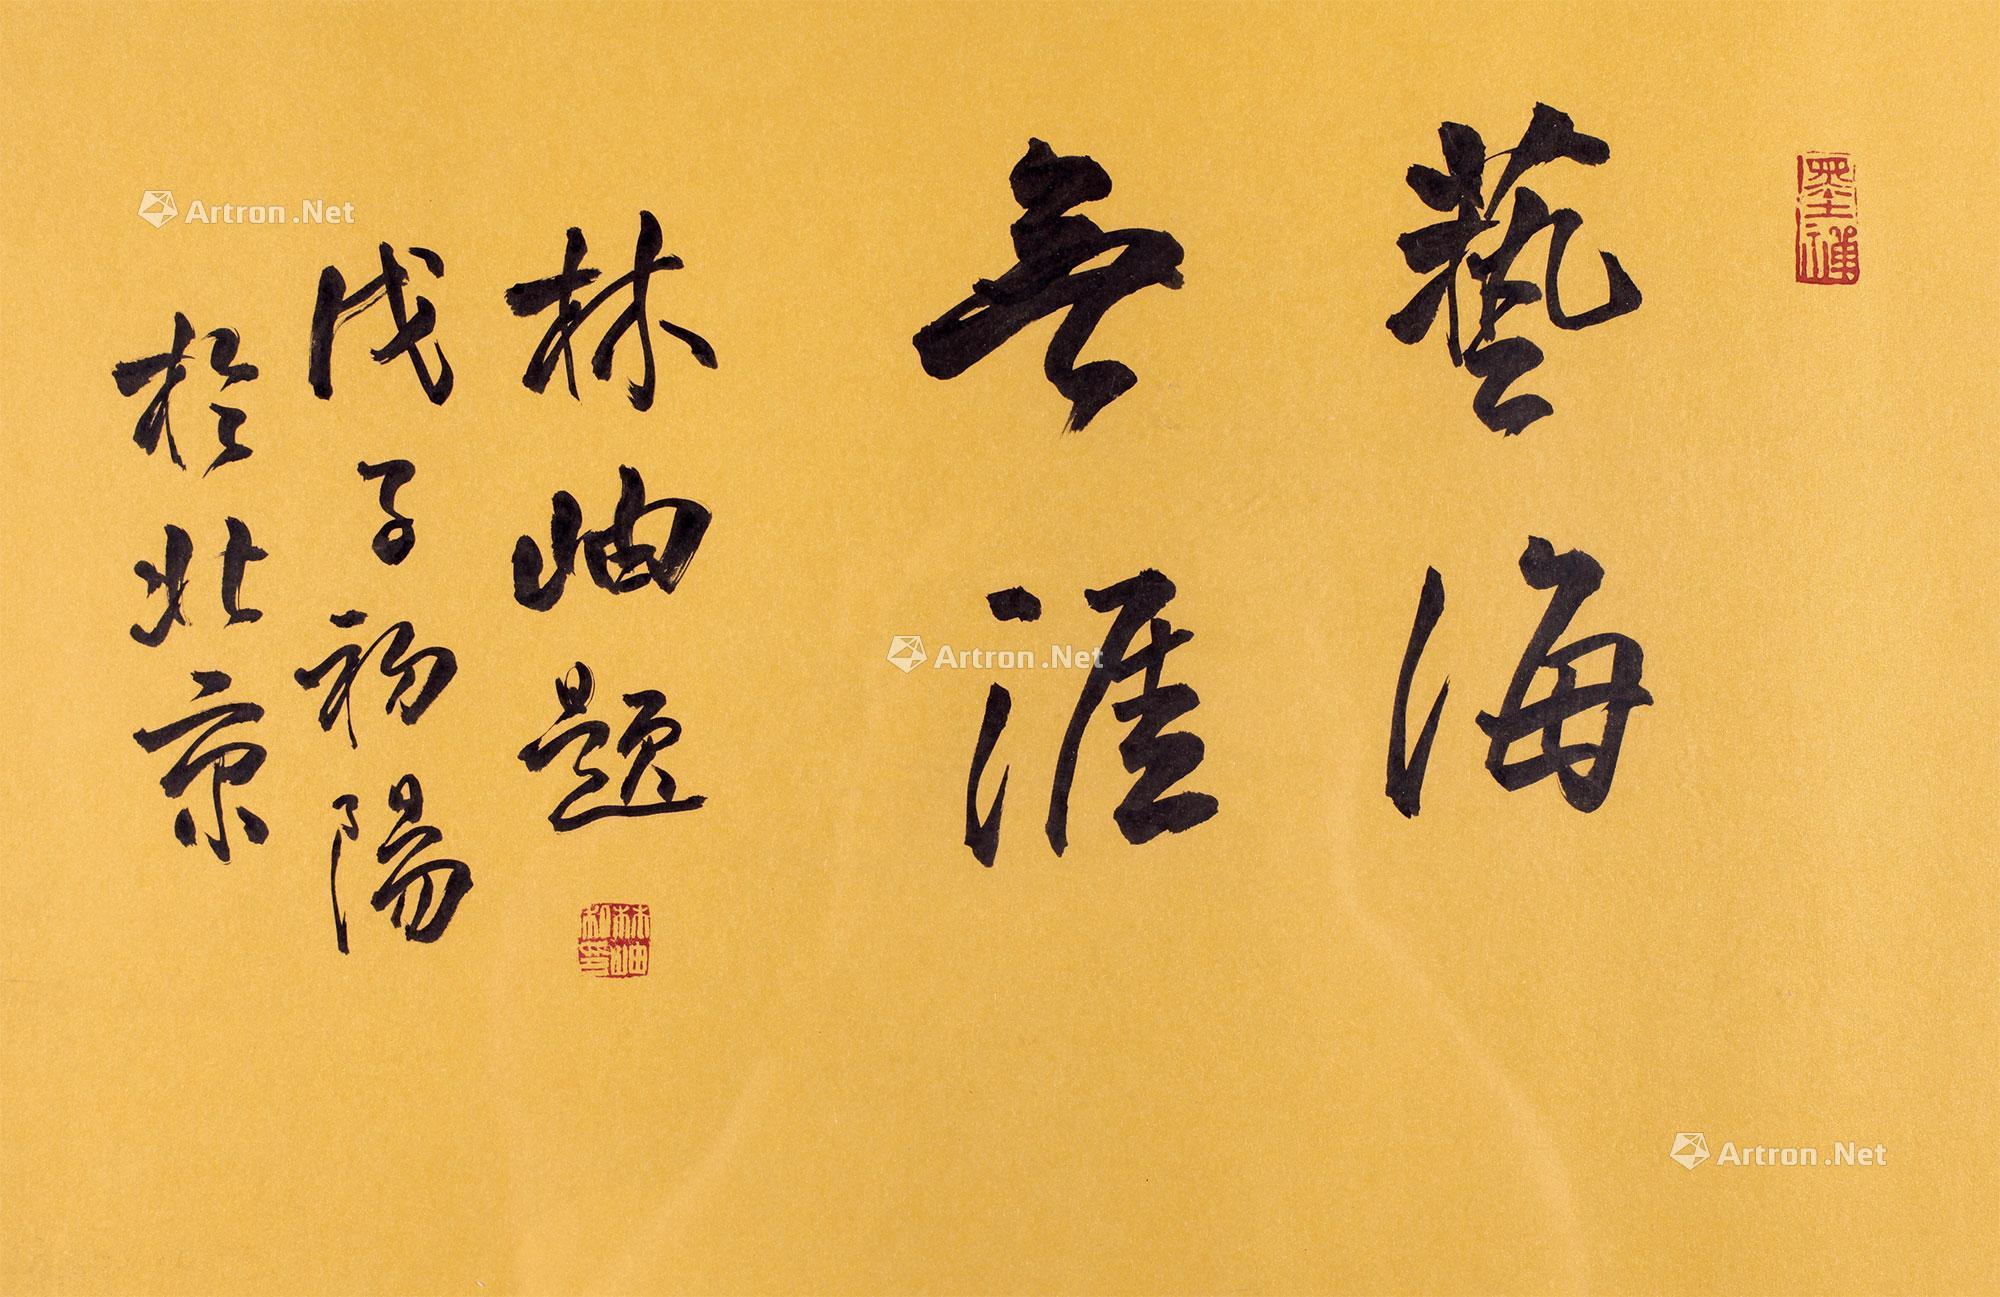 墨禪
藝海
無涯
林岫題
林岫私印
戊子初陽
於北京
Artron.Net
Artron.Net
Artron.Net